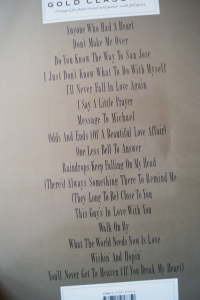 GOLD CLASS
Anyone Who Had A Heart
Don't Make Me Over
Do You Know The Way To San Jose
I Just Don't Know What To Do With Myself
I'll Never Fall In Love Again
I Say A Little Prayer
Message To Michael
Odds And Ends (Of A Beautiful Love Affair)
One Less Bell To Answer
Raindrops Keep Falling On My Head
(There's) Always Something There To Remind Me
(They Long To Be) Close To You
This Guy's In Love With You
Walk On By
What The World Needs Now Is Love
Wishin' And Hopin'
You'll Never Get To Heaven (If You Break My Heart)